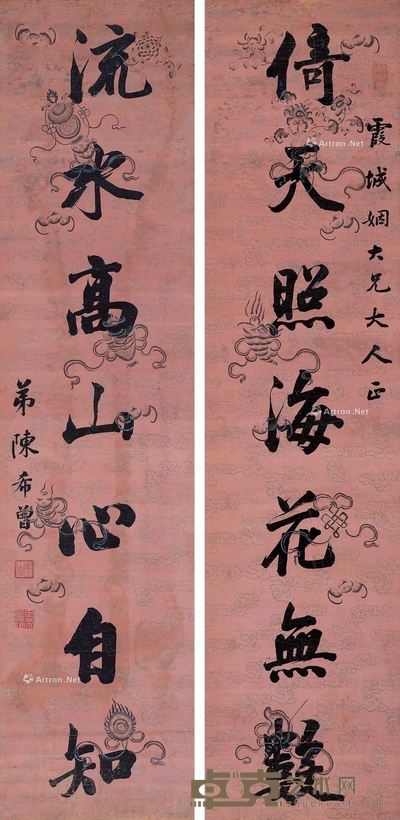 霞城姻大兄大人正
倚天照海花無數
流水高山心自知
弟陳希曾
Artron.Net
Artron.Net
Artron.Net
Artron.Net
Artron.Net
Artron.Net